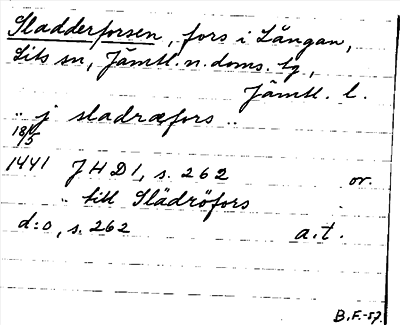 Sladderforsen, fors i Långan,
Lits sn, Jämtl. n. doms. tg.,
Jämtl. l.
.. j sladræfors ..
18/5
1441 JHD1, s. 262 or.
.. till Slädröfors
d:o, s. 262 a.t.
B.F.-57.